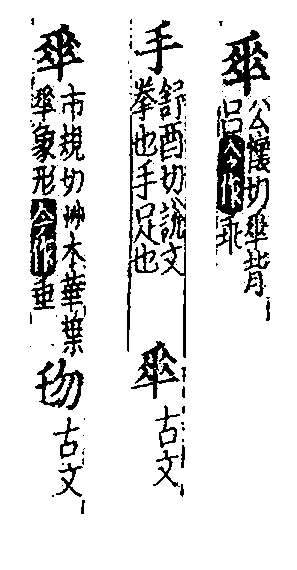 𠦬公懷切𠦬背
呂今作乖
手舒酉切說文
拳也手足也
𠂿古文
𠂹市規切艸木華葉
𠂹象形今作垂
古文